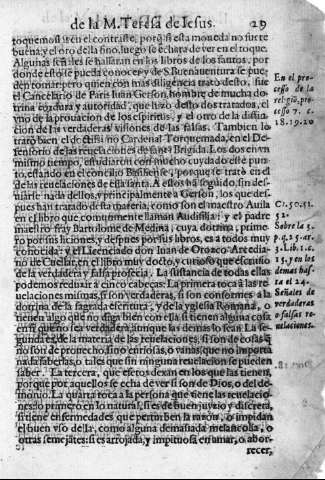 de la M. Teresa de Iesus. 29
toquemos en el contraste, porq̃ si esta moneda no fuere
buena, y el oro de la fino, luego se echara de ver en el toque.
Algunas señales se hallaran en los libros de los santos, por
donde esto se pueda conocer, y de S. Buenauentura se pue-
den tomar: pero quien con mas diligencia trato desto, fue
el Cancilerio de Paris Iuan Gerson, hombre de mucha do-
trina cordura y autoridad, que hizo desto dos tratados, el
vno de la prouacion de los espiritus, y el otro de la distin-
cion de las verdaderas visiones de las falsas. Tambien lo
trato bien el doctissimo Cardenal Torquemada, en el De-
fensorio de las reuelaciones de santa Brigida. Los dos en vn
mismo tiempo, estudiaron con mucho cuydado este pun-
to, estando en el concilio Basiliense, porque se trato en el
de las reuelaciones de esta santa. A estos ha seguido, sin des-
uiarse nada dellos, y principalmente a Gerson, los que des-
pues han tratado desta materia, como son el maestro Auila
en el libro que comunmente llaman Audifilia: y el padre
maestro fray Bartolome de Medina, cuya dotrina, prime-
ro por sus liciones, y despues por sus libros, es a todos muy
conocida: y el Licenciado don Iuan de Orozco Arcedia-
no de Cuellar, en el libro muy docto, y curioso que escriuio
de la verdadera y falsa profecia. La sustancia de todas ellas
podemos reduzir a cinco cabeças: La primera toca a las re-
uelaciones mismas, si son verdaderas, si son conformes a la
dotrina de la sagrada escritura, y de la yglesia Romana,
tienen algo que no diga bien con ella: si tienen alguna cosa
que no sea verdadera, aunque las demas lo sean. La se-
gunda es, de la materia de las reuelaciones, si son de cosas q̃
no son de prouecho, sino curiosas, o vanas, que no importa
nada saberlas, o tales que sin ninguna reuelacion se pueden
saber. La tercera, que efetos dexan en los que las tienen,
porque por aquellos se echa de ver si son de Dios, o del de-
monio. La quarta toca a la persona que tiene las reuelacio-
nes: lo primero en lo natural, si es de buen juyzio y discreta,
si tiene enfermedades que perturben la razon, o impidan
el buen vso de la, como alguna demasiada melancolia, o
otras semejãtes: si es arrojada, y impetuosa en amar, o abor-
recer,
En el pro-
cesso de la
religiõ, pro-
cesso 7. c.
18. 19. 20
C. 50. 51.
52.
Sobre la 3.
p. q. 25. ar-
3. L. ib. 1. c.
15. y en los
demas has-
ta el 24.
Señales de
verdaderas
o falsas re-
uelaciones.